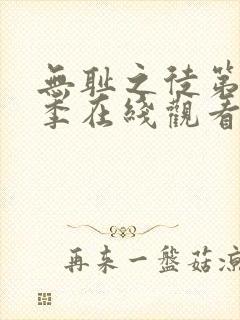 無耻之徒第
季在綫觀看
再来一盤菇凉